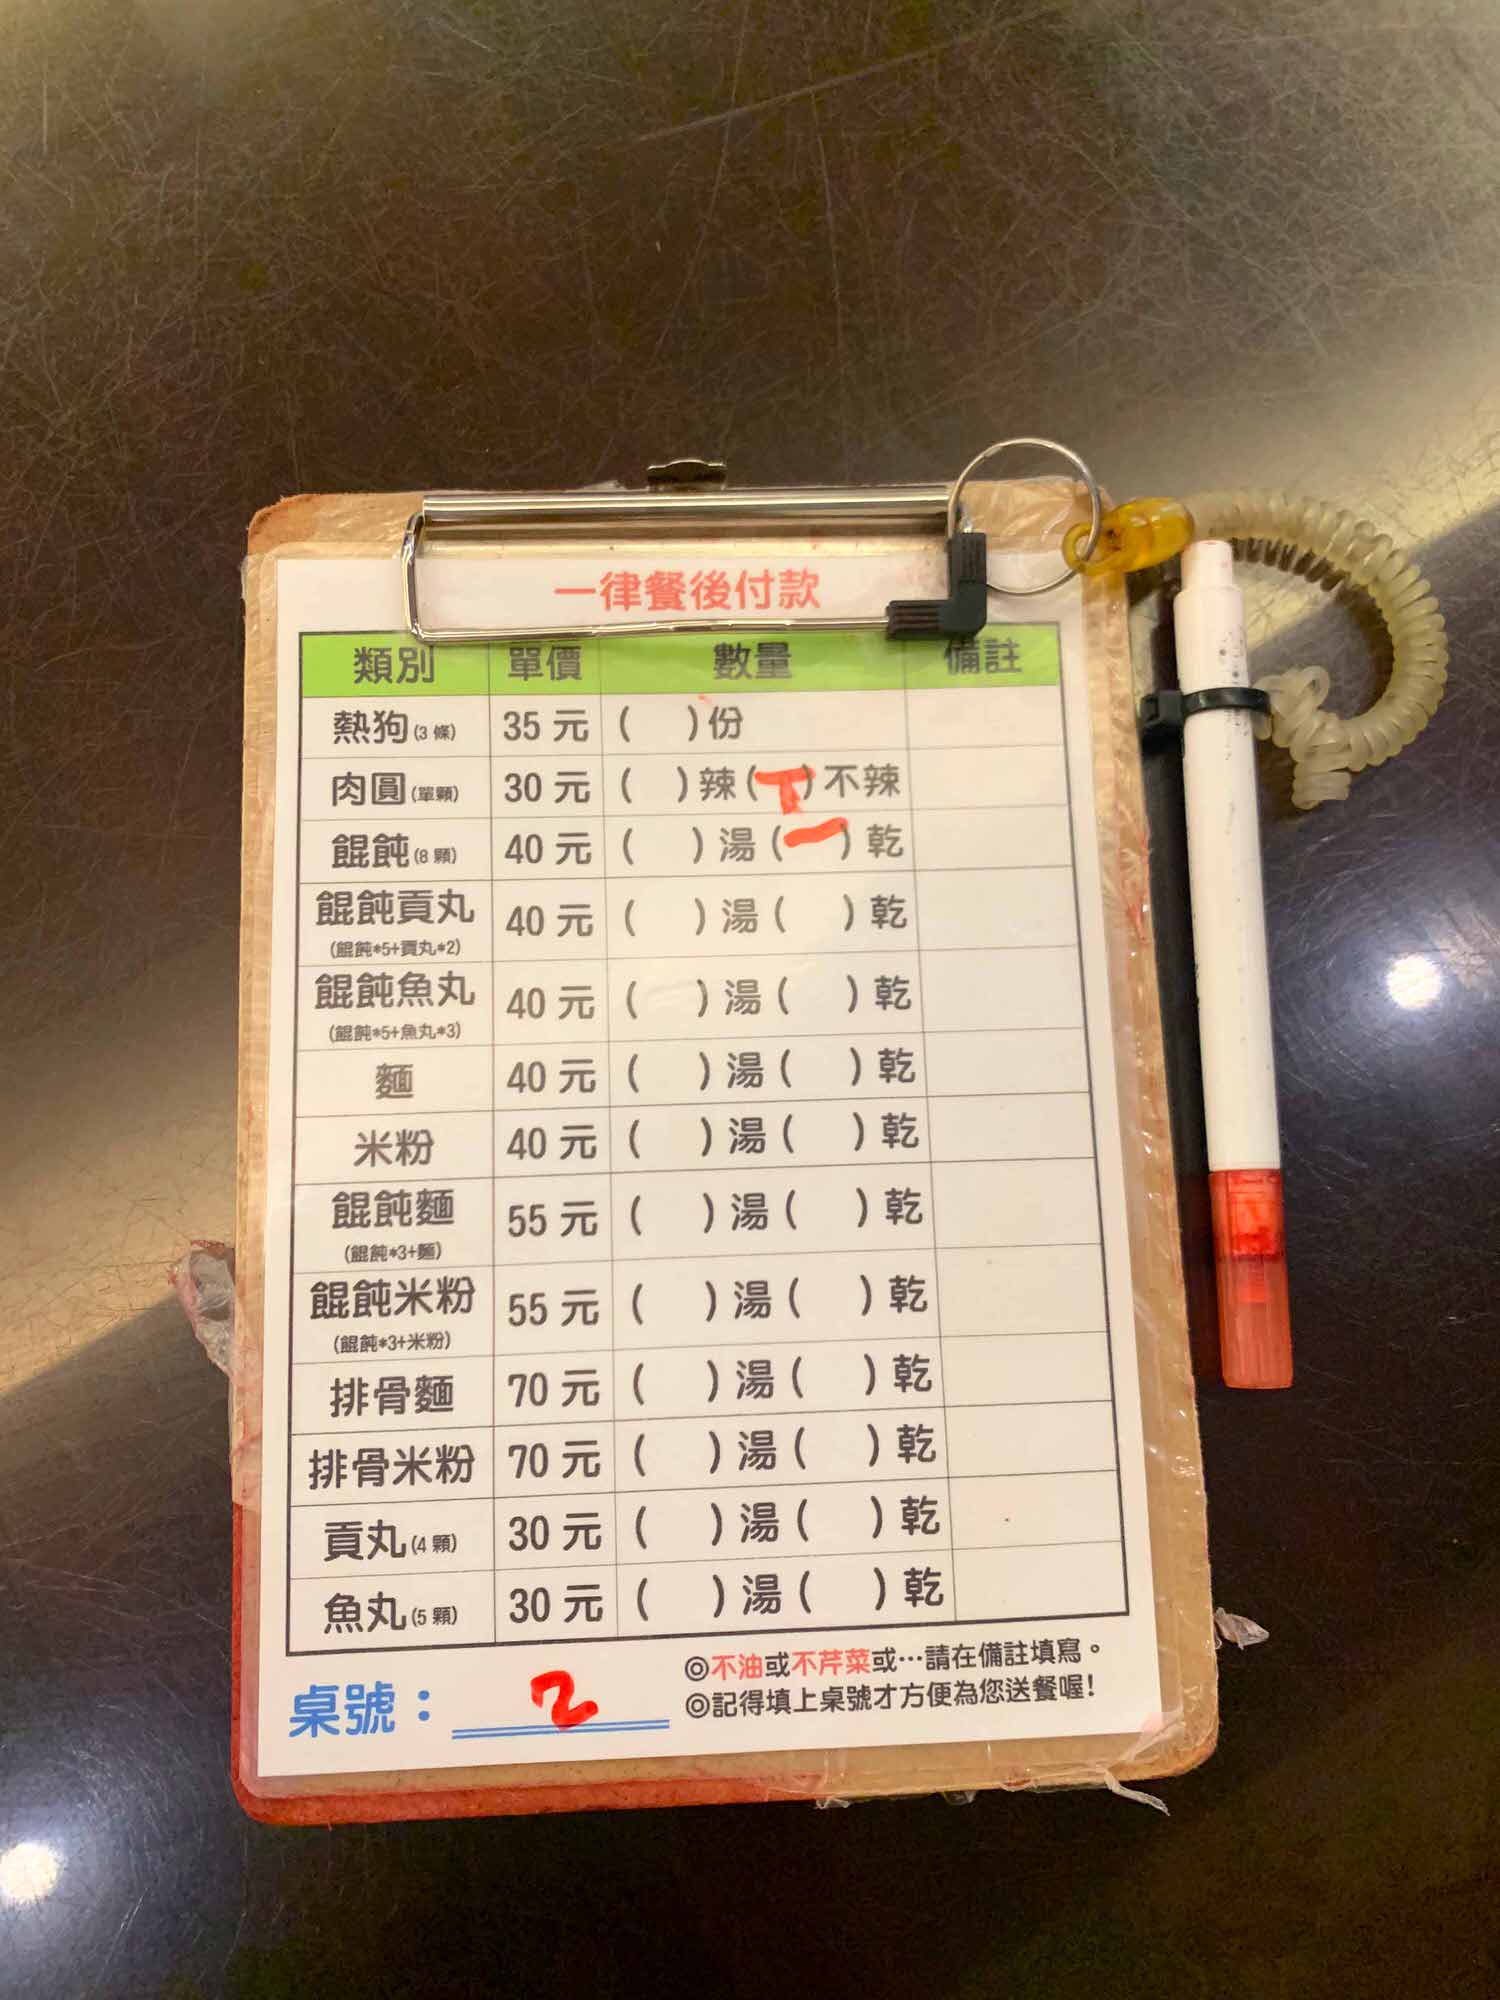 一律餐後付款
類別 單價 數量 備註
熱狗(3 條) 35 元 ( )份
肉圓(單顆) 30 元 ( )辣(T)不辣
餛飩(8 顆) 40 元 ( )湯(一)乾
餛飩貢丸 40 元 ( )湯( )乾
(餛飩*5+貢丸*2)
餛飩魚丸 40 元 ( )湯( )乾
(餛飩*5+魚丸*3)
麵 40 元 ( )湯( )乾
米粉 40 元 ( )湯( )乾
餛飩麵 55 元 ( )湯( )乾
(餛飩*3+麵)
餛飩米粉 55 元 ( )湯( )乾
(餛飩*3+米粉)
排骨麵 70 元 ( )湯( )乾
排骨米粉 70 元 ( )湯( )乾
貢丸(4 顆) 30 元 ( )湯( )乾
魚丸(5 顆) 30 元 ( )湯( )乾
桌號： 2
◎不油或不芹菜或…請在備註填寫。
◎記得填上桌號才方便為您送餐喔!